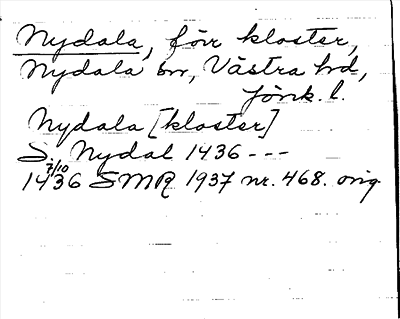 Nydala, förr kloster,
Nydala sn, Västra hd,
Jönk. l.
Nydala [kloster]
S. Nydal 1436 ---
1436 7/10 SMR 1937 nr. 468. orig.